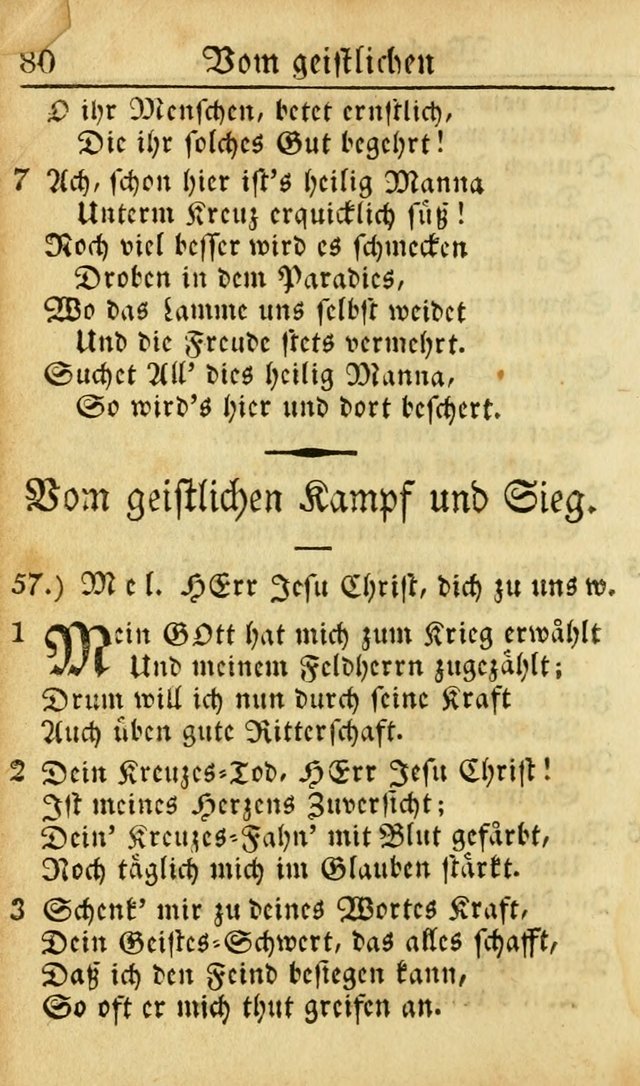 80 Vom geistlichen
O ihr Menschen, betet ernstlich,
Die ihr solches Gut begehrt!
7 Ach, schon hier ist's heilig Manna
Unterm Kreuz erquicklich süß!
Noch viel besser wird es schmecken
Droben in dem Paradies,
Wo das Lamme uns selbst weidet
Und die Freude stets vermehrt.
Suchet All' dies heilig Manna,
So wird's hier und dort beschert.
Vom geistlichen Kampf und Sieg.
57.) Mel. HErr Jesu Christ, dich zu uns w.
1 Mein GOtt hat mich zum Krieg erwählt
Und meinem Feldherrn zugezählt;
Drum will ich nun durch seine Kraft
Auch üben gute Ritterschaft.
2 Dein Kreuzes-Tod, HErr Jesu Christ!
Ist meines Herzens Zuversicht;
Dein' Kreuzes-Fahn' mit Blut gefärbt,
Noch täglich mich im Glauben stärkt.
3 Schenk' mir zu deines Wortes Kraft,
Dein Geistes-Schwert, das alles schafft,
Daß ich den Feind besiegen kann,
So oft er mich thut greifen an.